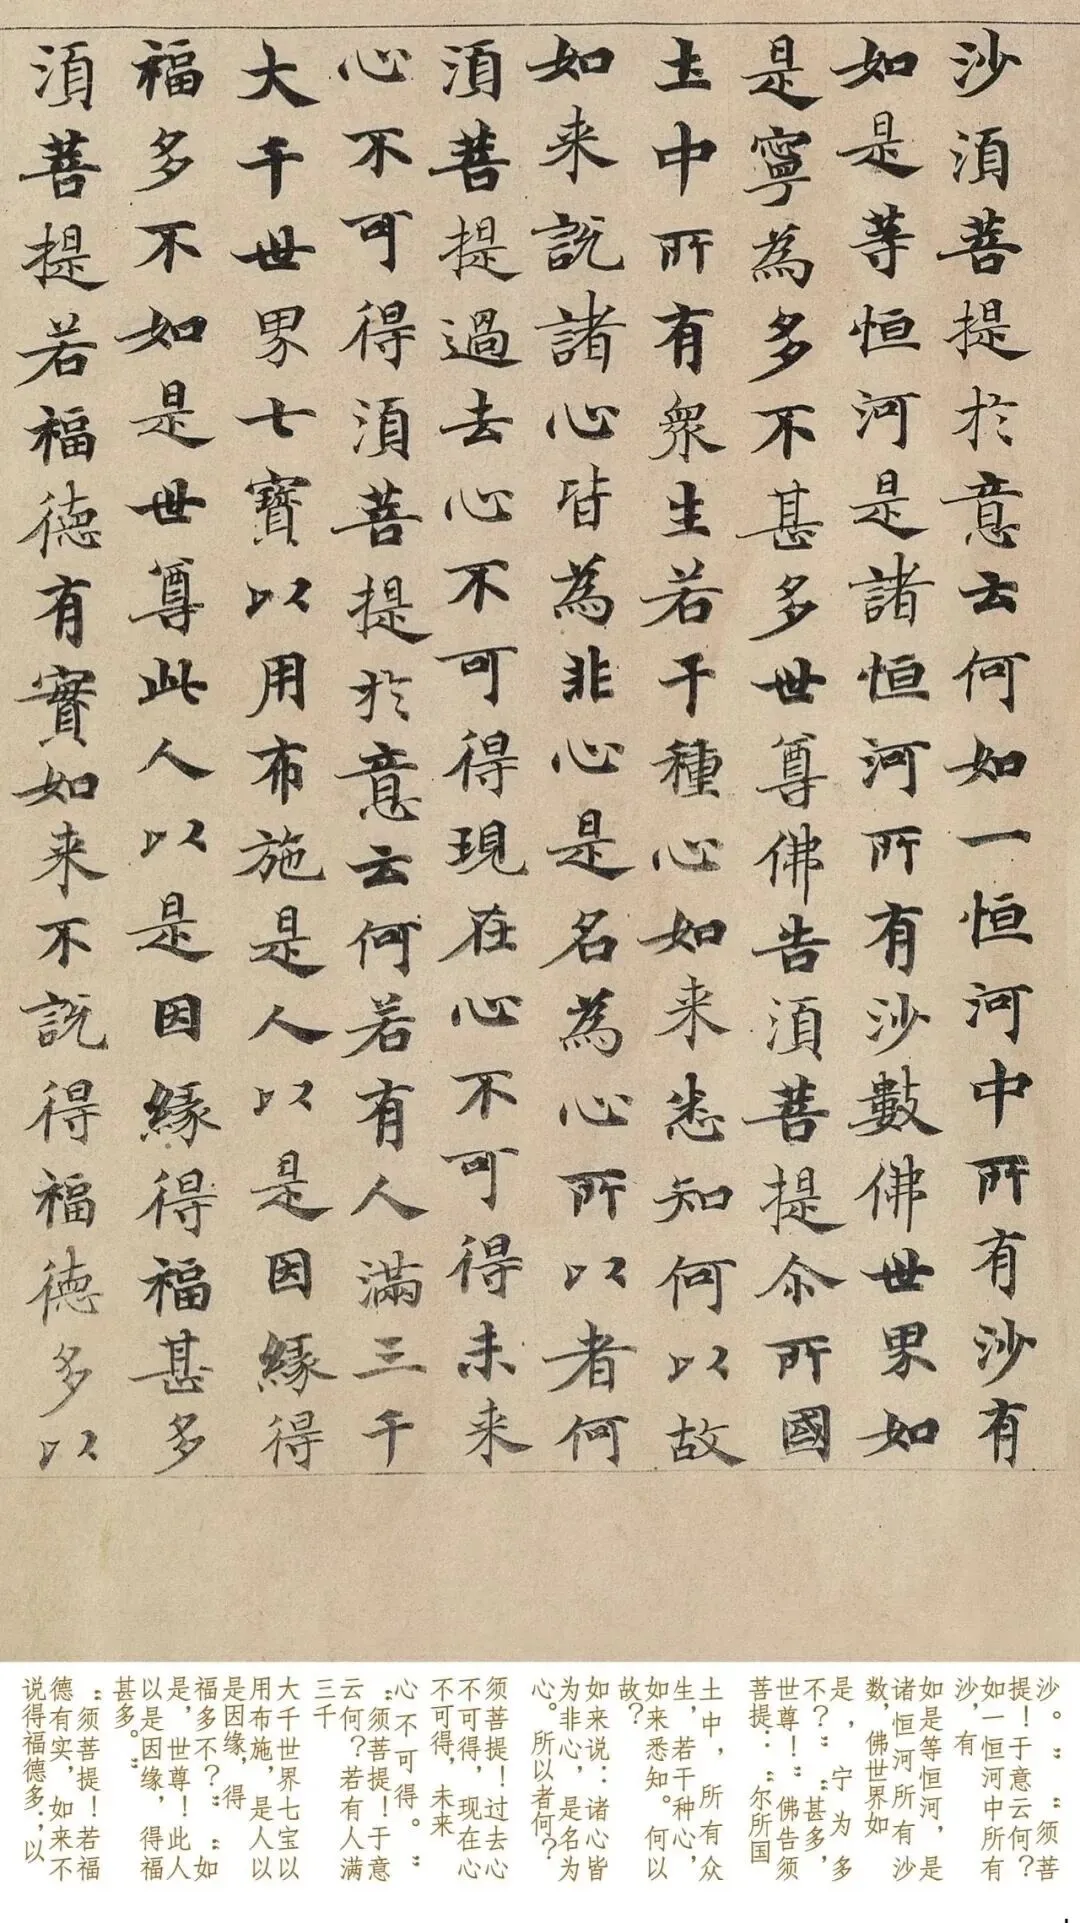 沙湏菩提扵意云何如一恒河中所有沙有
如是等恒河是諸恒河所有沙數佛世界如
是寧為多不甚多世尊佛告湏菩提尒所國
土中所有衆生若干種心如来悉知何以故
如来説諸心皆為非心是名為心所以者何
湏菩提過去心不可得現在心不可得未来
心不可得湏菩提扵意云何若有人滿三千
大千世界七寶以用布施是人以是因緣得
福多不如是世尊此人以是因緣得福甚多
湏菩提若福德有實如来不説得福德多以
沙。”“须菩
提！于意云何？
如一恒河中所有
沙，有
如是等恒河，是
诸恒河所有沙
数，佛世界如
是，宁为多
不？”“甚多，
世尊！”佛告须
菩提：“尔所国
土中，所有众
生，若干种心，
如来悉知。何以
故？
如来说：诸心皆
为非心，是名为
心。所以者何？
须菩提！过去心
不可得，现在心
不可得，未来
心不可得。”
“须菩提！于意
云何？若有人满
三千
大千世界七宝以
用布施，是人以
是因缘，得
福多不？”“如
是，世尊！此人
以是因缘，得福
甚多。”
“须菩提！若福
德有实，如来不
说得福德多；以